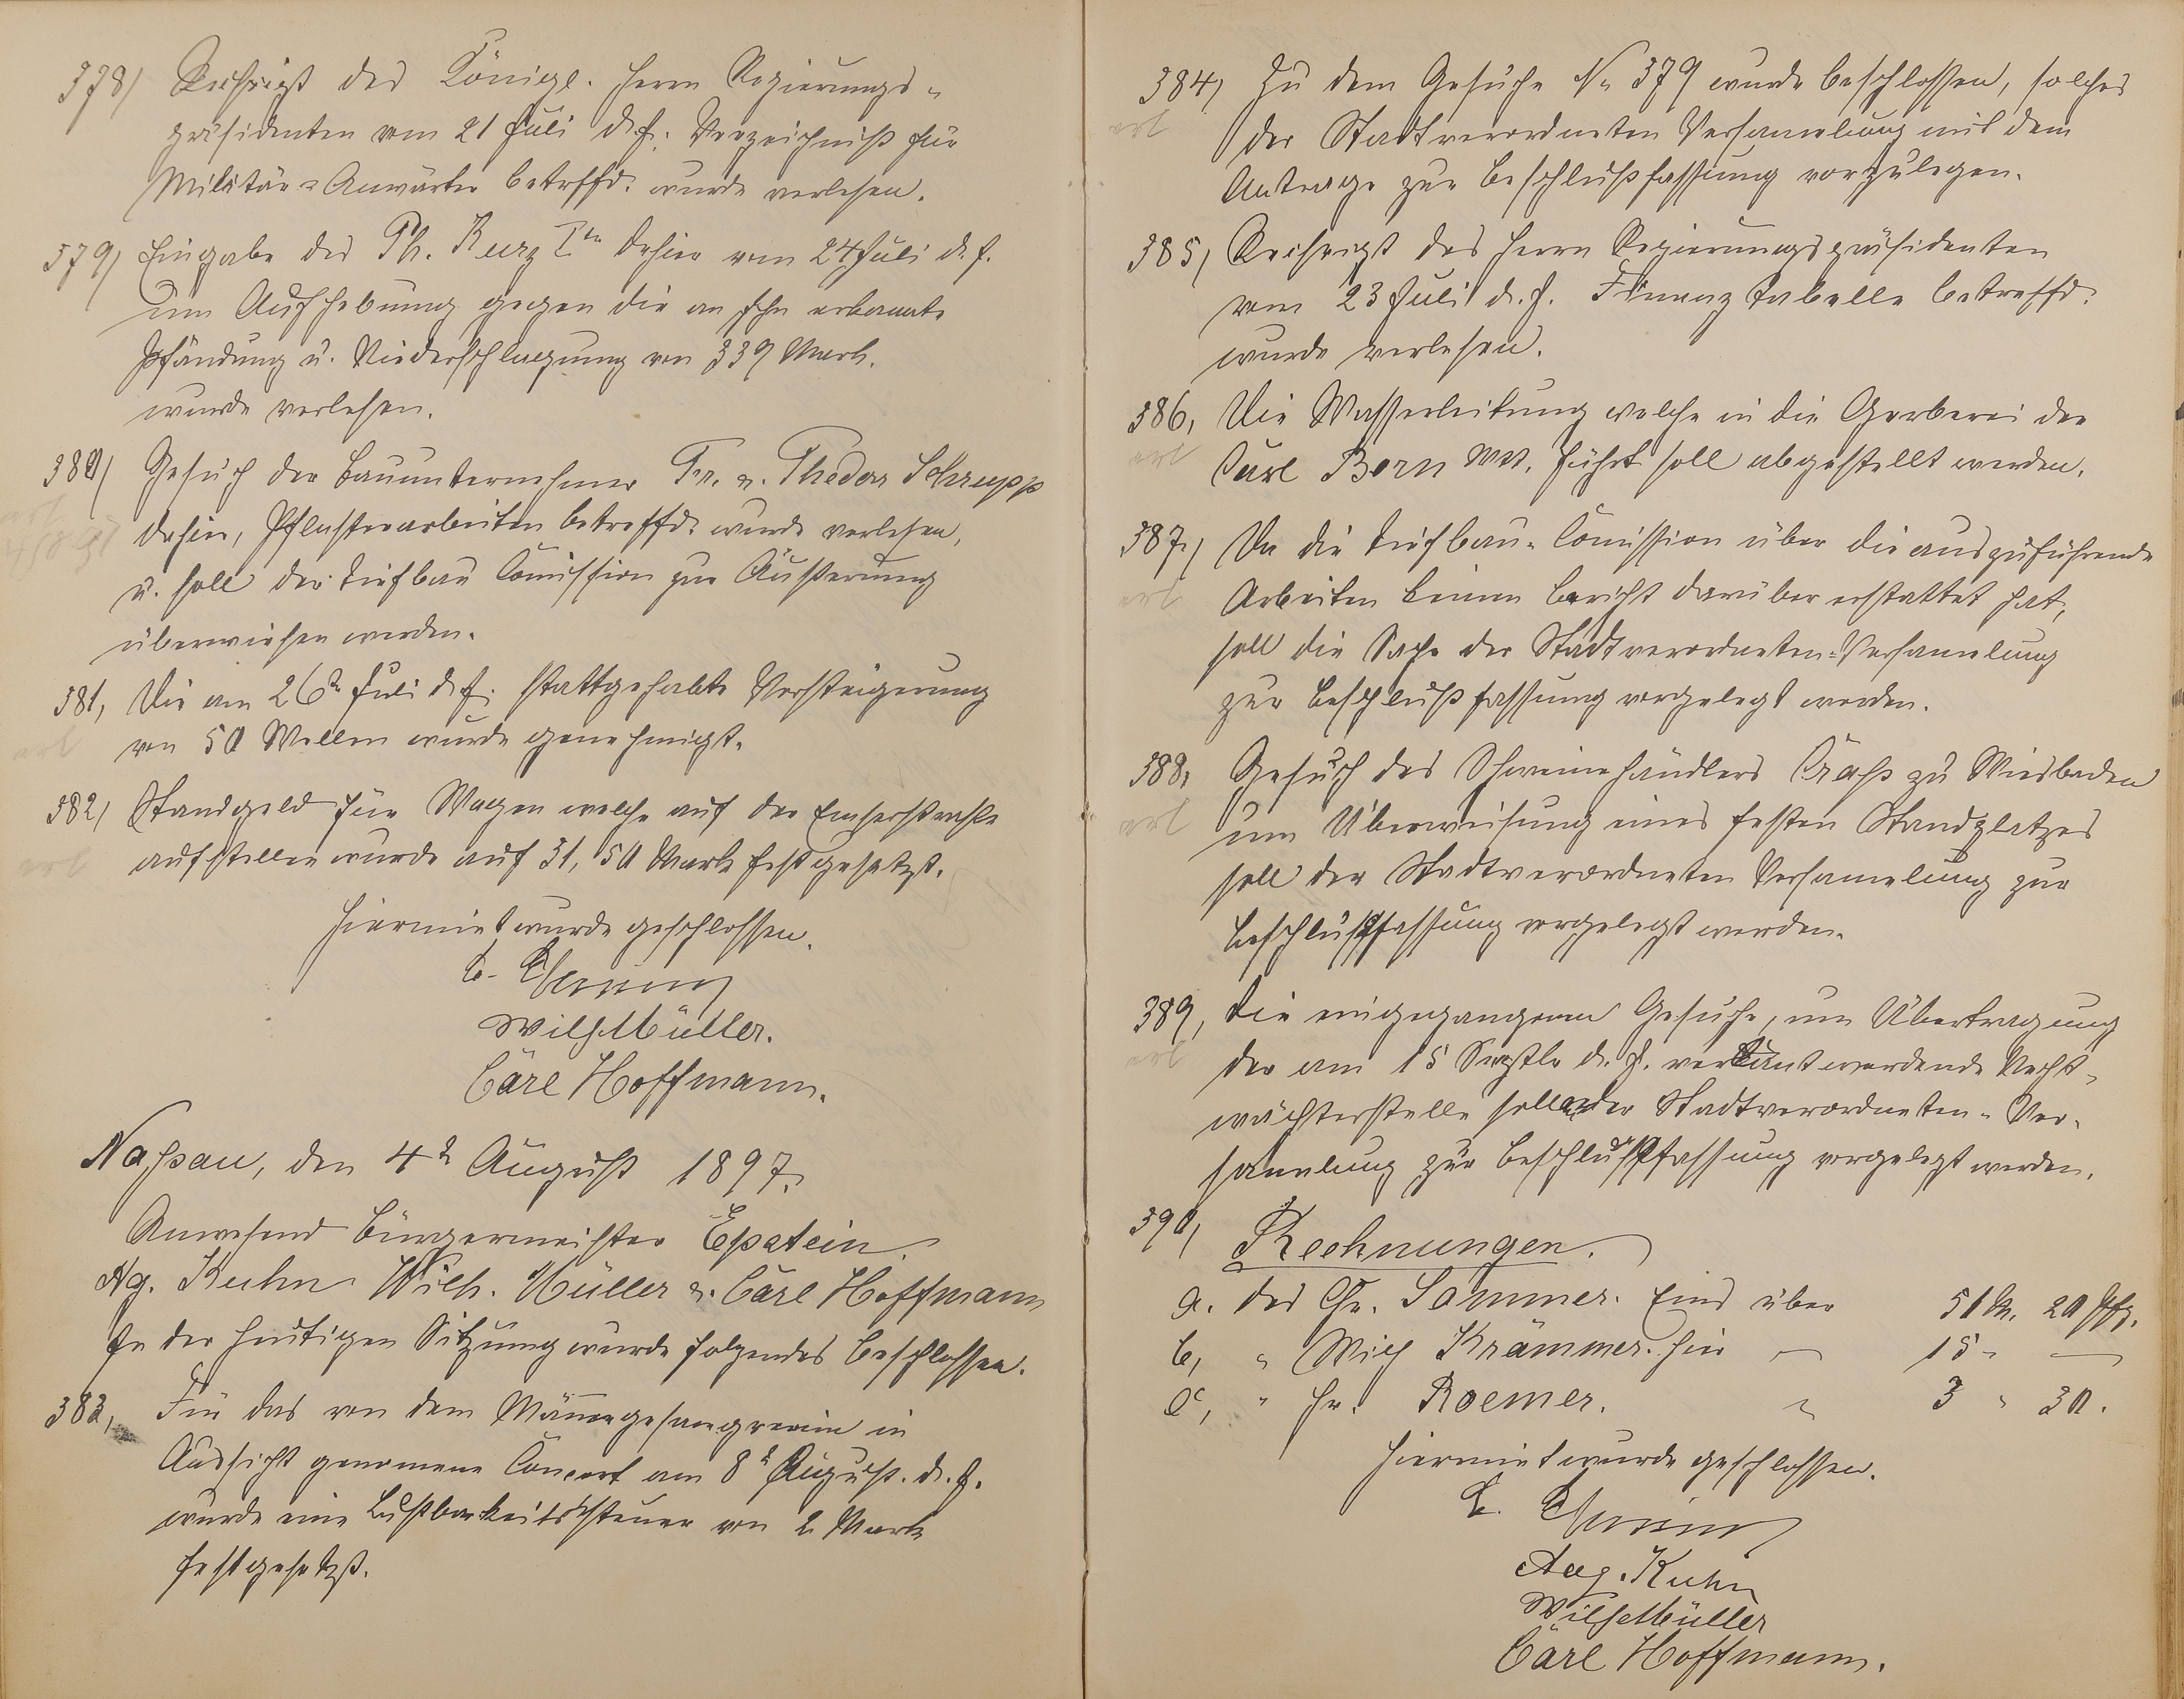 378) Rescript des Königl. Herrn Regierungs-
präsidenten vom 21 Juli d. J. Verzeichniß für
Militär=Anwärter betrffd. wurde verlesen.
379) Eingabe des Ph. Kurz Ite dahier vom 24 Juli d. J.
um Aufhebung gegen die an Ihn erkannte
Pfändung u. Niederschlagung von 339 Mark.
wurde verlesen.
380) Gesuch der Bauunternehmer Fr. u. Thedor Schrupp
dahier, Pflasterarbeiten betreffd. wurde verlesen,
u. soll der Tiefbau Comission zur Äußerung
überwiesen werden.
381, Die am 26ten Juli d. J. stattgehabte Versteigerung
von 50 Wellen wurde genehmigt.
382) Standgeld für Wagen welche auf der Emserstraße
aufstellen wurde auf 31,50 Mark festgesetzt.
Hiermit wurde geschlossen.
Wilh Müller.
Carl Hoffmann.
Naßau, den 4t August 1897.
Anwesend Bürgermeister Epstein.
Ag. Kuhn Wilh. Müller u. Carl Hoffmann
In der heutigen Sitzung wurde folgendes beschlossen.
383, Für das von dem Männegesangverein in
Aussicht genomene Concert am 8t August. d. J.
wurde eine Lustbarkeitssteuer von 2 Mark
festgesetzt.
384) Zu dem Gesuche No 379 wurde beschlossen, solches
der Stadtverordneten Versamelung mit dem
Antrage zur Beschlußfassung vorzulegen.
385) Rescript des Herrn Regierungspräsidenten
vom 23 Juli d. J. Finanztabelle betreffd.
wurde verlesen.
386, Die Wasserleitung welche in die Gerberei der
Carl Born Wit. führt soll abgestellt werden.
387,) Da die Tiefbau-Comission über die auszuführende
Arbeiten keinen Bericht darüber erstattet hat,
soll die Sache der Stadtverordneten=Versamelung
zur Beschlußfassung vorgelegt werden.
388, Gesuch des Schweinehändlers Graß zu Wiesbaden
um Überweisung eines festen Standplatzes
soll der Stadtverordneten Versamelung zur
Beschlußfassung vorgelegt werden.
389, Die eingegangenen Gesuche, um Übertragung
der am 15 Septbr d. J. vakant werdende Nacht-
wächterstelle sollen der Stadtverordneten-Ver-
samelung zur Beschlußfassung vorgelegt werden.
390, Rechnungen.
a. des Chr. Sommer. Ems über 51 M. 20 Pfg.
b, " Krämmer. hier — 15 " —
c, " Hr. Roemer. " 3 " 30.
Hiermit wurde geschlossen.
Aug. Kuhn
Wilh Müller
Carl Hoffmann.